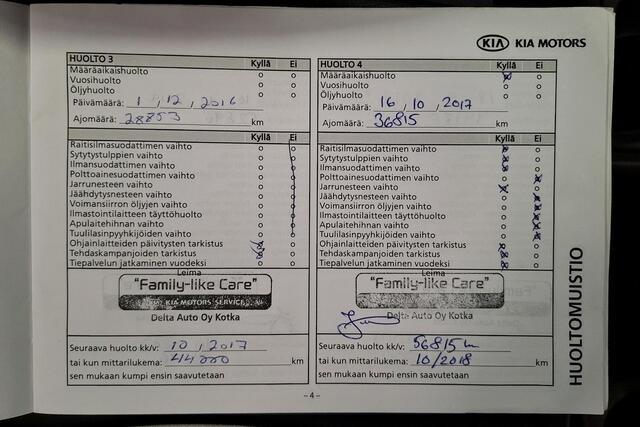 KIA KIA MOTORS
HUOLTO 3 Kyllä Ei
Määräaikaishuolto
Vuosihuolto
Öljyhuolto
Päivämäärä: 1, 12, 2016
Ajomäärä: 28853 km
Kyllä Ei
Raitisilmasuodattimen vaihto
Sytytystulppien vaihto
Ilmansuodattimen vaihto
Polttoainesuodattimen vaihto
Jarrunesteen vaihto
Jäähdytysnesteen vaihto
Voimansiirron öljyjen vaihto
Ilmastointilaitteen täyttöhuolto
Apulaitehihnan vaihto
Tuulilasinpyyhkijöiden vaihto
Ohjainlaitteiden päivitysten tarkistus
Tehdaskampanjoiden tarkistus
Tiepalvelun jatkaminen vuodeksi
Leima
"Family-like Care"
KIA MOTORS SERVICE
Delta Auto Oy Kotka
Seuraava huolto kk/v: 10, 2017
tai kun mittarilukema: 44000 km
sen mukaan kumpi ensin saavutetaan
HUOLTO 4 Kyllä Ei
Määräaikaishuolto
Vuosihuolto
Öljyhuolto
Päivämäärä: 16, 10, 2017
Ajomäärä: 36815 km
Kyllä Ei
Raitisilmasuodattimen vaihto
Sytytystulppien vaihto
Ilmansuodattimen vaihto
Polttoainesuodattimen vaihto
Jarrunesteen vaihto
Jäähdytysnesteen vaihto
Voimansiirron öljyjen vaihto
Ilmastointilaitteen täyttöhuolto
Apulaitehihnan vaihto
Tuulilasinpyyhkijöiden vaihto
Ohjainlaitteiden päivitysten tarkistus
Tehdaskampanjoiden tarkistus
Tiepalvelun jatkaminen vuodeksi
Leima
"Family-like Care"
Delta Auto Oy Kotka
Seuraava huolto kk/v: 56815
tai kun mittarilukema: 10/2018 km
sen mukaan kumpi ensin saavutetaan
HUOLTOMUISTIO
- 4 -